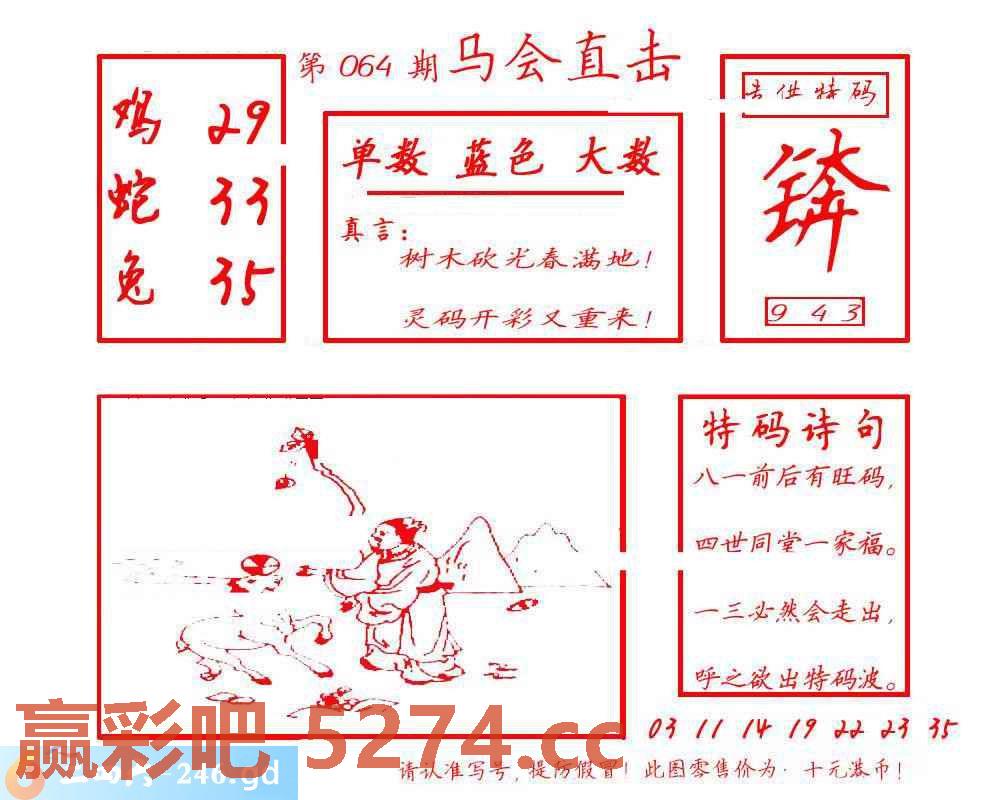 第 064 期 马会直击
鸡 29
蛇 33
兔 35
单数 蓝色 大数
真言：
树木砍光春满地！
灵码开彩又重来！
供特码
9 4 3
特码诗句
八一前后有旺码，
四世同堂一家福。
一三必然会走出，
呼之欲出特码波。
03 11 14 19 22 23 35
赢彩吧 5274.cc
-246.gd
请认准写号，提防假冒！此图零售价为·十元港币！